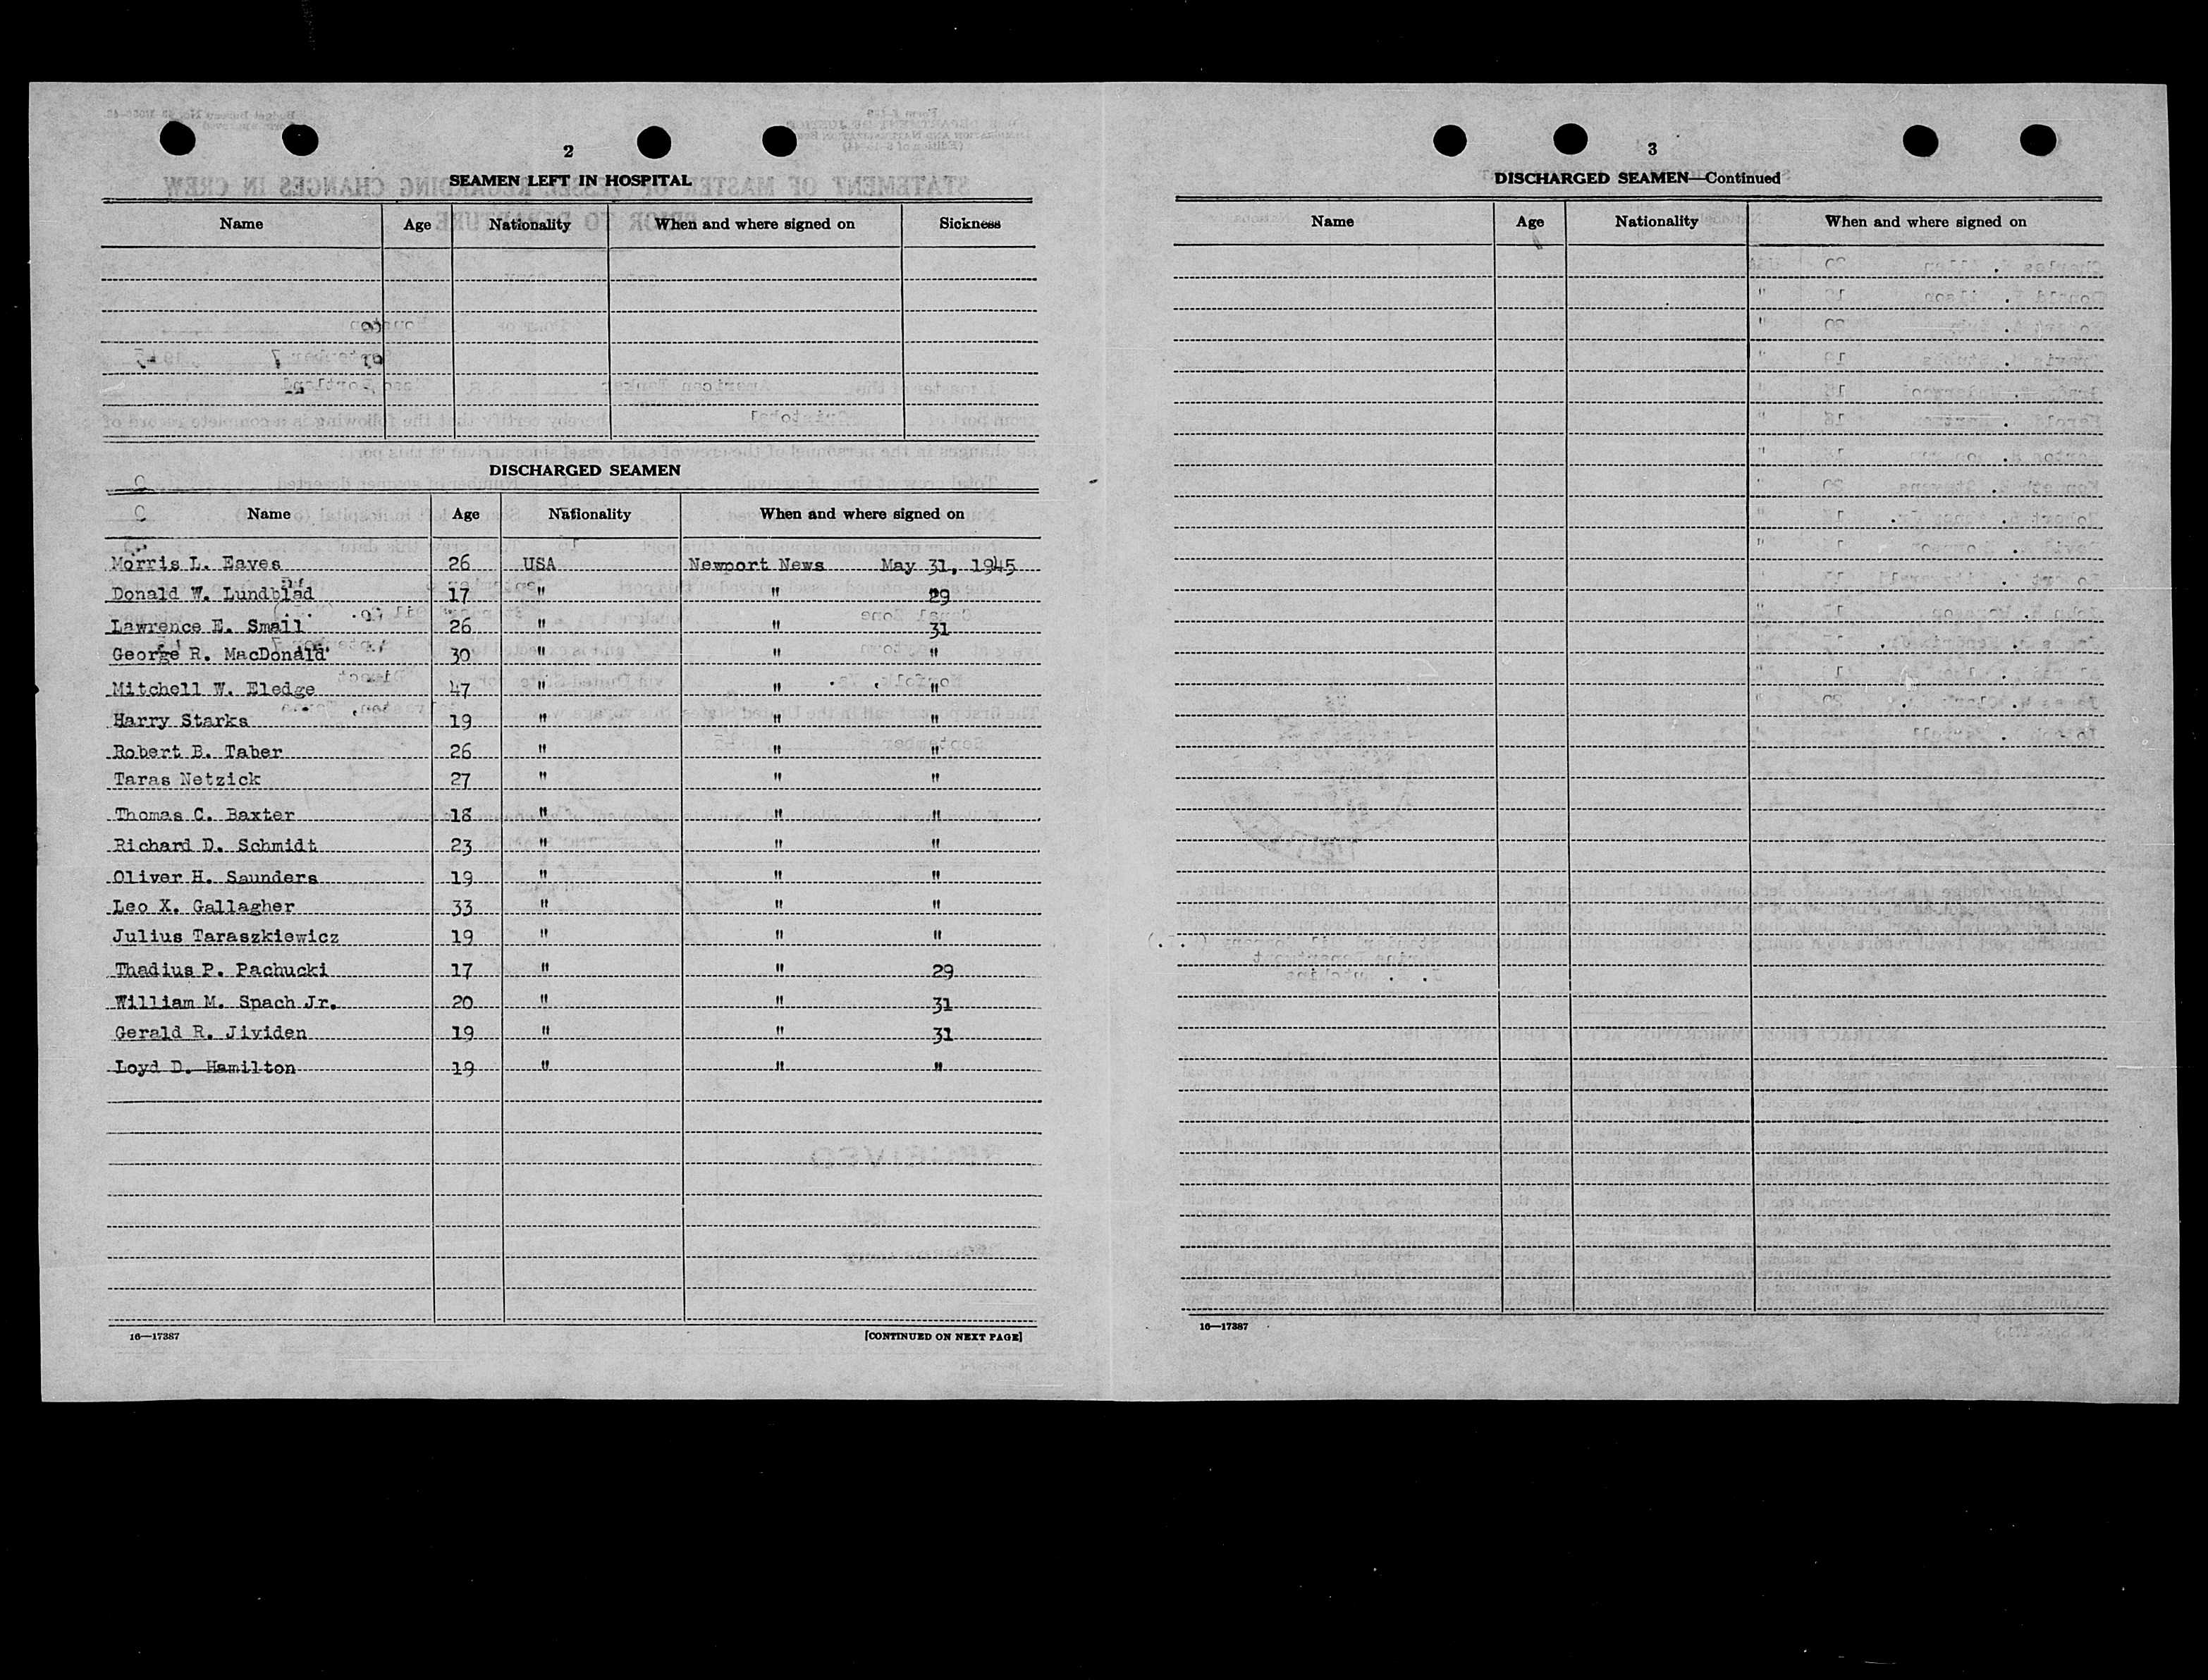 2
SEAMEN LEFT IN HOSPITAL
Name Age Nationality When and where signed on Sickness
DISCHARGED SEAMEN
Name Age Nationality When and where signed on
Morris L. Eaves 26 USA Newport News May 31, 1945
Donald W. Lundblad 17 " " 29
Lawrence E. Smail 26 " " 31
George R. MacDonald 30 " " "
Mitchell W. Eledge 47 " " "
Harry Starks 19 " " "
Robert B. Taber 26 " " "
Taras Netzick 27 " " "
Thomas C. Baxter 18 " " "
Richard D. Schmidt 23 " " "
Oliver H. Saunders 19 " " "
Leo X. Gallagher 33 " " "
Julius Taraszkiewicz 19 " " "
Thadius P. Pachucki 17 " " 29
William M. Spach Jr. 20 " " 31
Gerald R. Jividen 19 " " 31
Loyd D. Hamilton 19 " " "
16—17387
[CONTINUED ON NEXT PAGE]
3
DISCHARGED SEAMEN—Continued
Name Age Nationality When and where signed on
16—17387